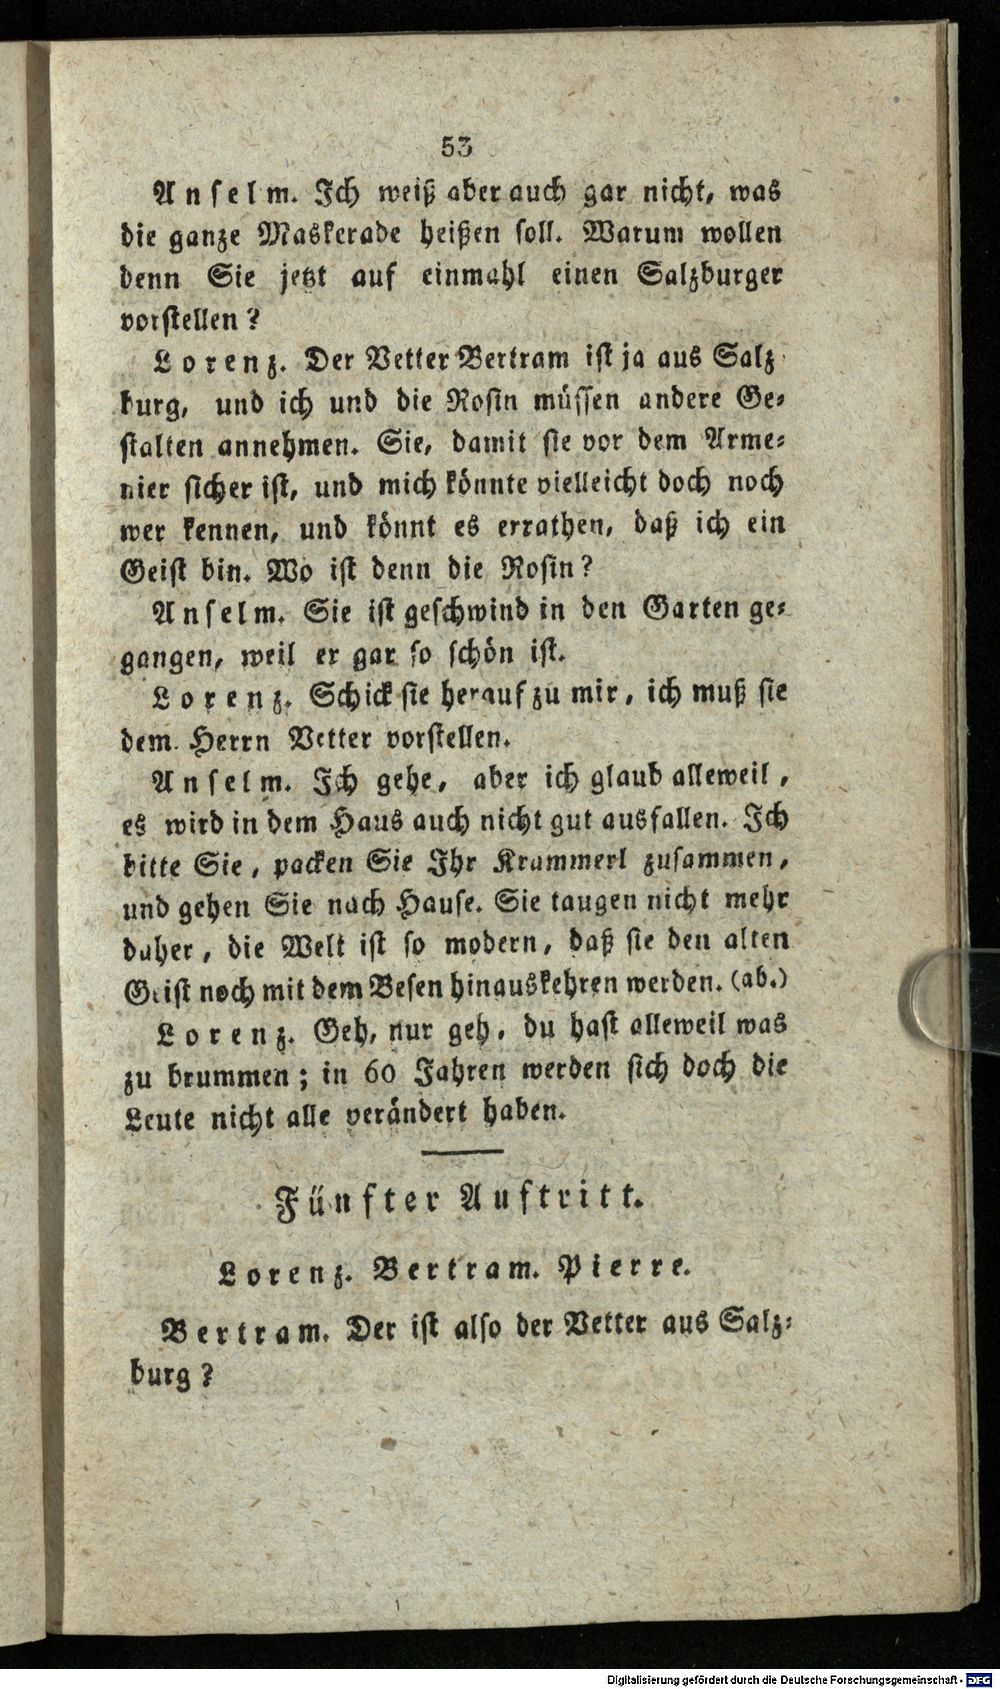 53
Anselm. Ich weiß aber auch gar nicht, was
die ganze Maskerade heißen soll. Warum wollen
denn Sie jetzt auf einmahl einen Salzburger
vorstellen?
Lorenz. Der Vetter Bertram ist ja aus Salz
burg, und ich und die Rosin müssen andere Ge-
stalten annehmen. Sie, damit sie vor dem Arme-
nier sicher ist, und mich könnte vielleicht doch noch
wer kennen, und könnt es errathen, daß ich ein
Geist bin. Wo ist denn die Rosin?
Anselm. Sie ist geschwind in den Garten ge-
gangen, weil er gar so schön ist.
Lorenz. Schick sie herauf zu mir, ich muß sie
dem Herrn Vetter vorstellen.
Anselm. Ich gehe, aber ich glaub alleweil,
es wird in dem Haus auch nicht gut ausfallen. Ich
bitte Sie, packen Sie Ihr Krammerl zusammen,
und gehen Sie nach Hause. Sie taugen nicht mehr
daher, die Welt ist so modern, daß sie den alten
Geist noch mit dem Besen hinauskehren werden. (ab.)
Lorenz. Geh, nur geh, du hast alleweil was
zu brummen; in 60 Jahren werden sich doch die
Leute nicht alle verändert haben.
Fünfter Auftritt.
Lorenz. Bertram. Pierre.
Bertram. Der ist also der Vetter aus Salz-
burg?
Digitalisierung gefördert durch die Deutsche Forschungsgemeinschaft - DFG